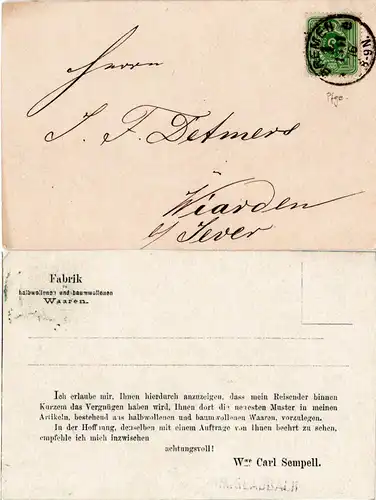 Herrn
J. F. Detmers
Wiarden
b/ Jever
BREMEN
Fabrik
halbwollenen und baumwollenen
Waaren.
Ich erlaube mir, Ihnen hierdurch anzuzeigen, dass mein Reisender binnen
Kurzem das Vergnügen haben wird, Ihnen dort die neuesten Muster in meinen
Artikeln, bestehend aus halbwollenen und baumwollenen Waaren, vorzulegen.
In der Hoffnung, denselben mit einem Auftrage von Ihnen beehrt zu sehen,
empfehle ich mich inzwischen
achtungsvoll!
Wwe Carl Sempell.
M.GLADBACH